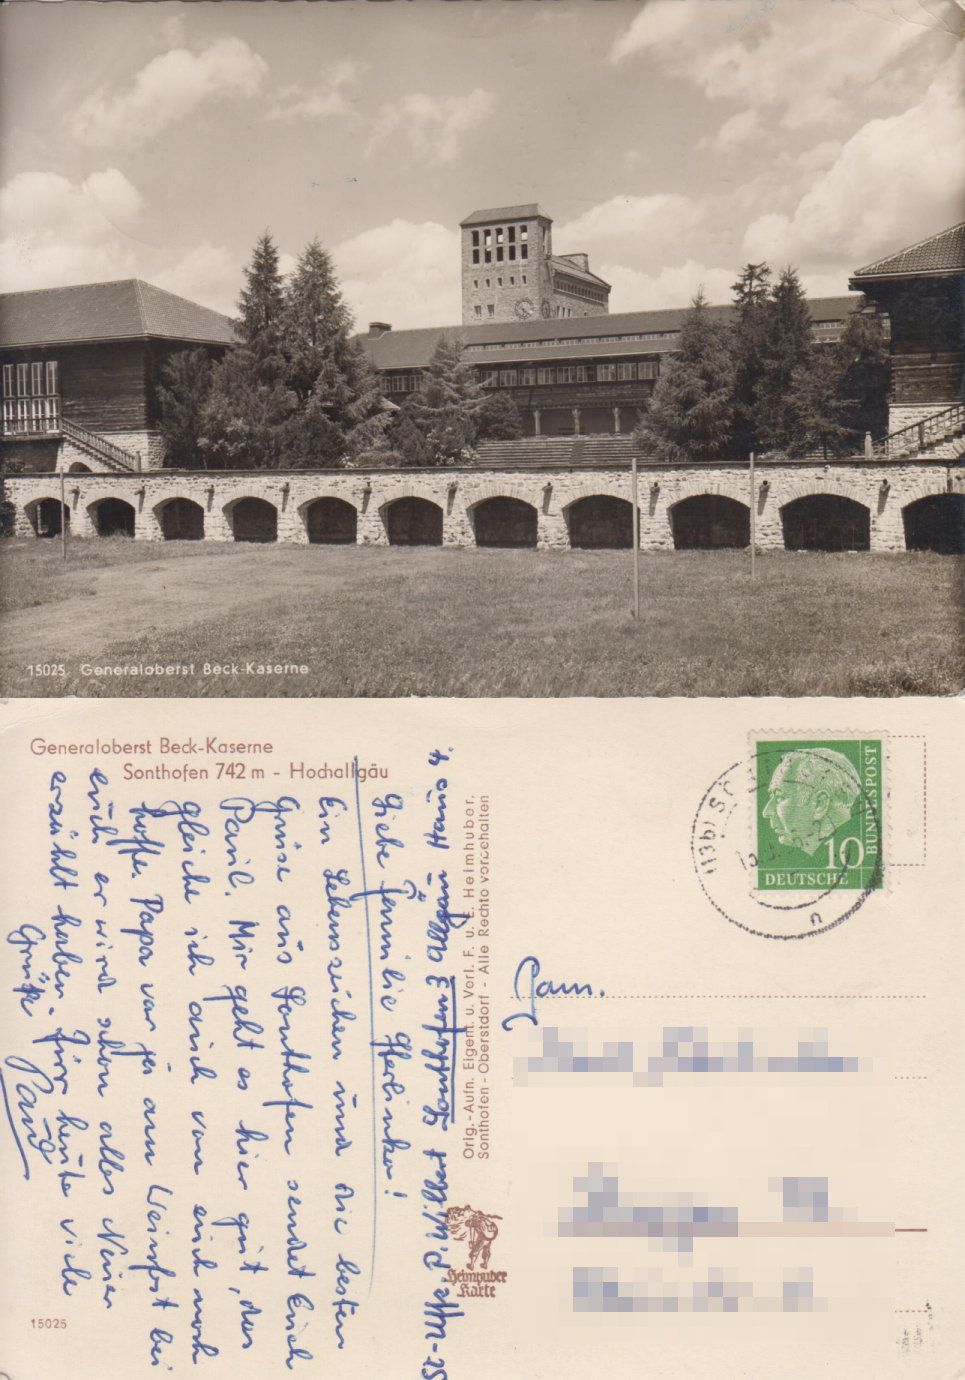 15025. Generaloberst Beck-Kaserne
Generaloberst Beck-Kaserne
Sonthofen 742 m - Hochallgäu
Liebe Familie
Ein Lebenszeichen und die besten
Grüsse aus Sonthofen sendet Euch
Paul. Mir geht es hier gut, das
gleiche ich auch von euch noch
hoffe. Papa war ja am bei
euch er wird schon alles
erzählt haben. Für heute viele
Grüße Paul
Sonthofen Allgäu Haus 4.
Orig.-Aufn. Eigent. u. Verl. F. u. E. Heimhuber,
Sonthofen - Oberstdorf - Alle Rechte vorbehalten
Heimhuber
Karte
15025
10
DEUTSCHE
BUNDESPOST
(13b) SO
n
Fam.